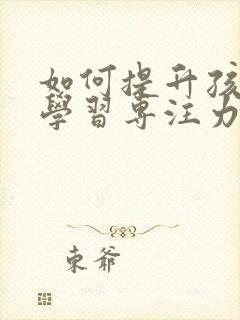 如何提升孩
學習專注力
東爺